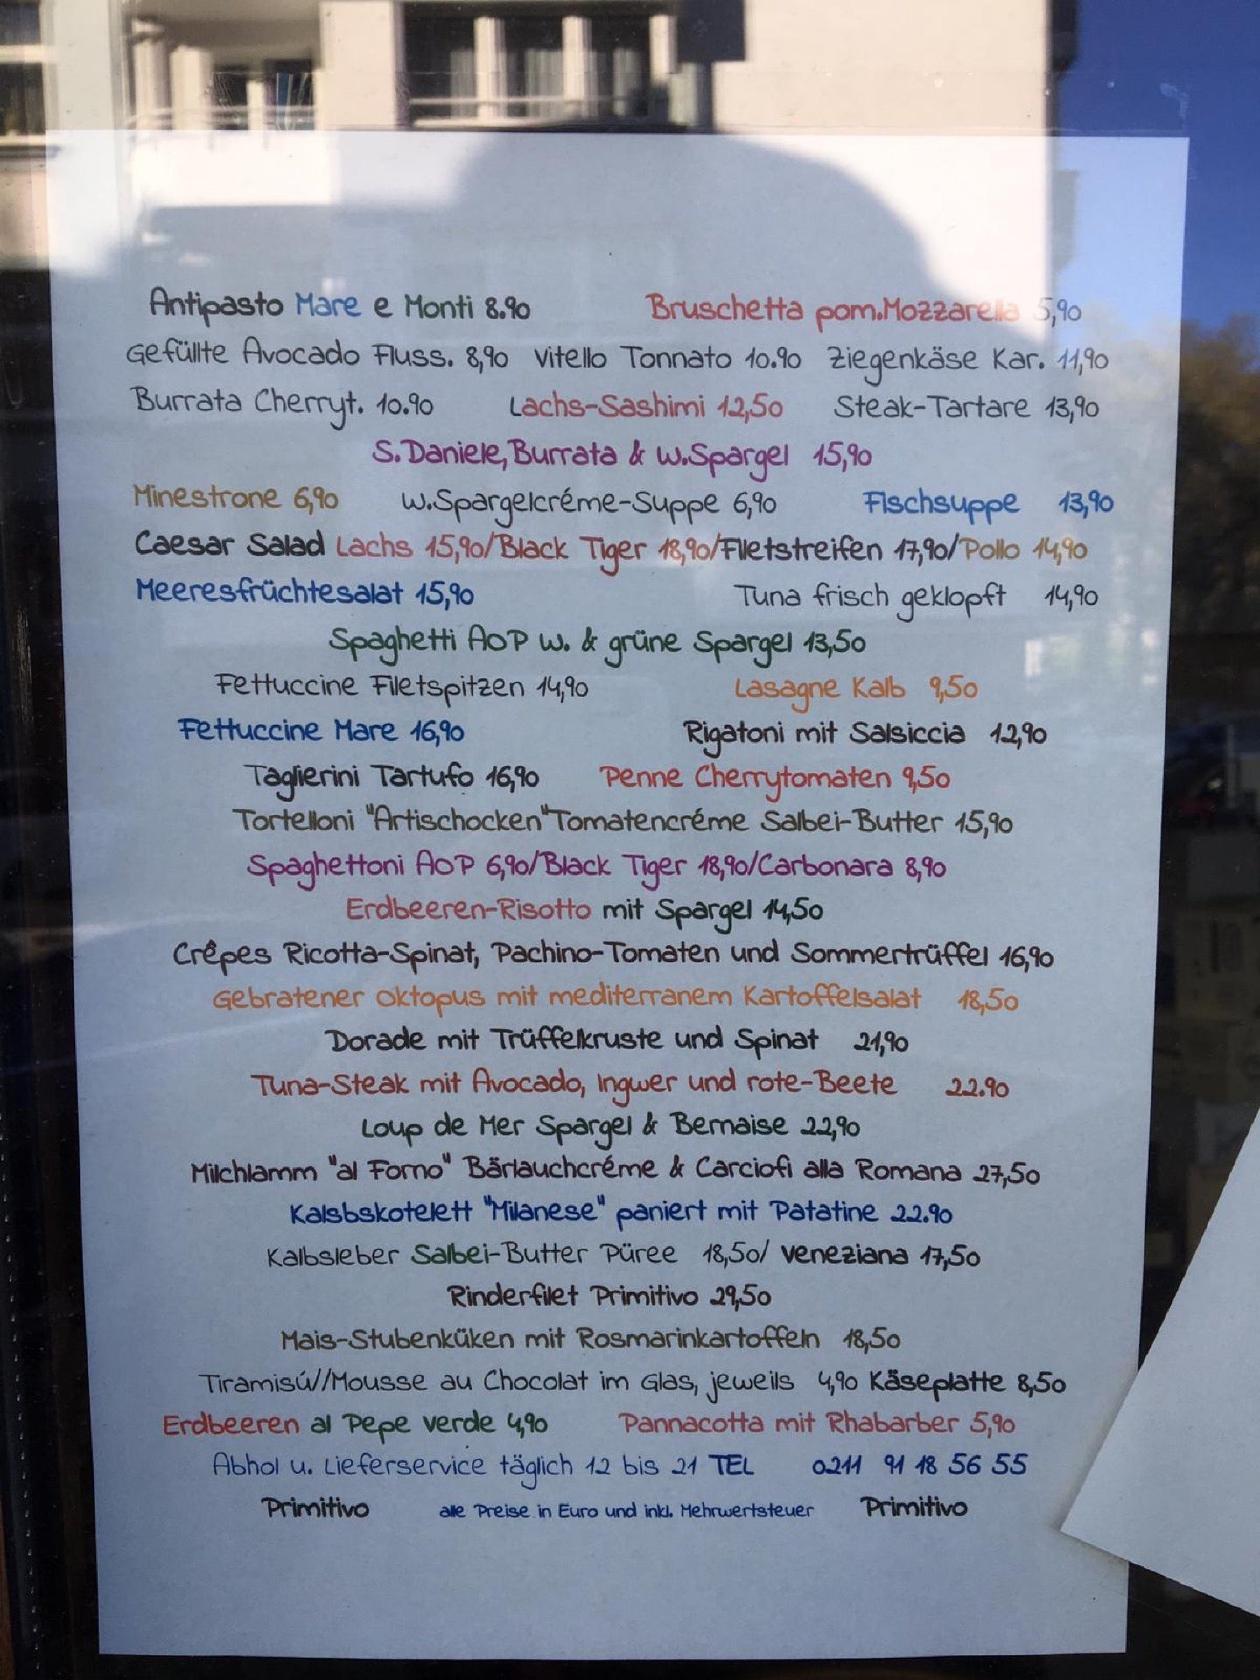 Antipasto Mare e Monti 8.90 Bruschetta pom.Mozzarella 5,90
Gefüllte Avocado Fluss. 8,90 Vitello Tonnato 10.90 Ziegenkäse Kar. 11,90
Burrata Cherryt. 10.90 Lachs-Sashimi 12,50 Steak-Tartare 13,90
S.Daniele,Burrata & w.Spargel 15,90
Minestrone 6,90 w.Spargelcréme-Suppe 6,90 Fischsuppe 13,90
Caesar Salad Lachs 15,90/Black Tiger 18,90/Filetstreifen 17,90/Pollo 14,90
Meeresfrüchtesalat 15,90 Tuna frisch geklopft 14,90
Spaghetti AOP w. & grüne Spargel 13,50
Fettuccine Filetspitzen 14,90 Lasagne Kalb 9,50
Fettuccine Mare 16,90 Rigatoni mit Salsiccia 12,90
Taglierini Tartufo 16,90 Penne Cherrytomaten 9,50
Tortelloni "Artischocken"Tomatencréme Salbei-Butter 15,90
Spaghettoni AOP 6,90/Black Tiger 18,90/Carbonara 8,90
Erdbeeren-Risotto mit Spargel 14,50
Crêpes Ricotta-Spinat, Pachino-Tomaten und Sommertrüffel 16,90
Gebratener Oktopus mit mediterranem Kartoffelsalat 18,50
Dorade mit Trüffelkruste und Spinat 21,90
Tuna-Steak mit Avocado, Ingwer und rote-Beete 22.90
Loup de Mer Spargel & Bernaise 22,90
Milchlamm "al Forno" Bärlauchcréme & Carciofi alla Romana 27,50
Kalsbskotelett "Milanese" paniert mit Patatine 22.90
Kalbsleber Salbei-Butter Püree 18,50/ veneziana 17,50
Rinderfilet Primitivo 29,50
Mais-Stubenküken mit Rosmarinkartoffeln 18,50
Tiramisú//Mousse au Chocolat im Glas, jeweils 4,90 Käseplatte 8,50
Erdbeeren al Pepe verde 4,90 Pannacotta mit Rhabarber 5,90
Abhol u. Lieferservice täglich 12 bis 21 TEL 0211 91 18 56 55
Primitivo alle Preise in Euro und inkl. Mehrwertsteuer Primitivo